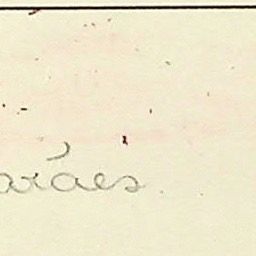 arães